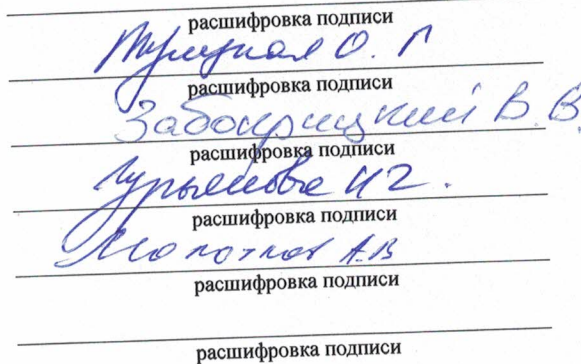 расшифровка подписи
О. Г
расшифровка подписи
В. В.
расшифровка подписи
Гурьянова И Г.
расшифровка подписи
Молотков А.В
расшифровка подписи
расшифровка подписи